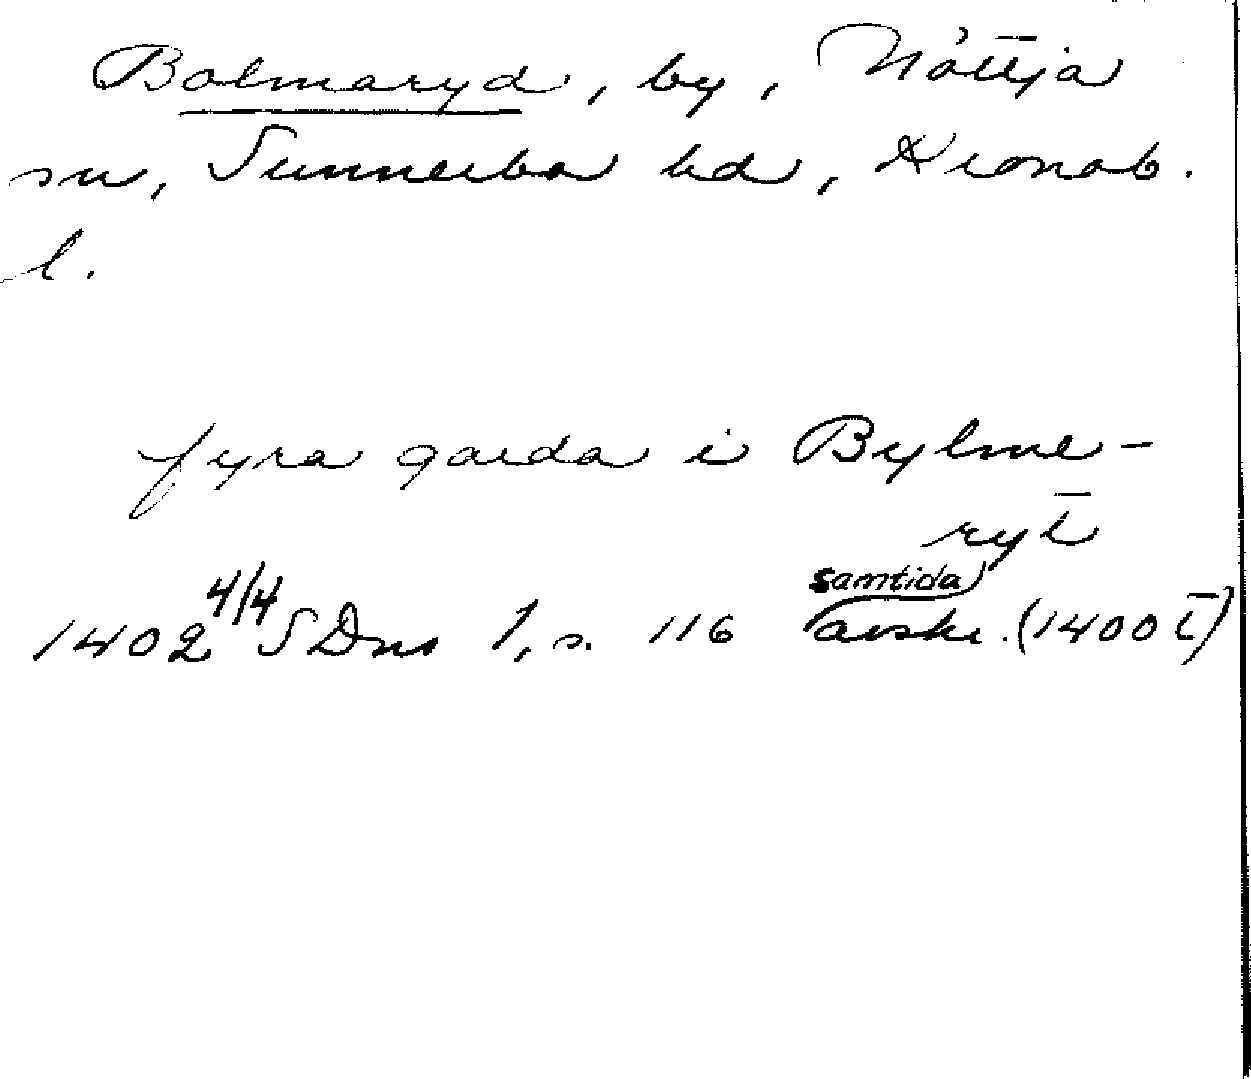 Bolmaryd, by, Nöttja
sn, Sunnerbo hd, Kronob.
l.
fyra garda i Bylme-
ryt
samtida
1402 4/4 SDns 1, s. 116 avskr. (1400 t)